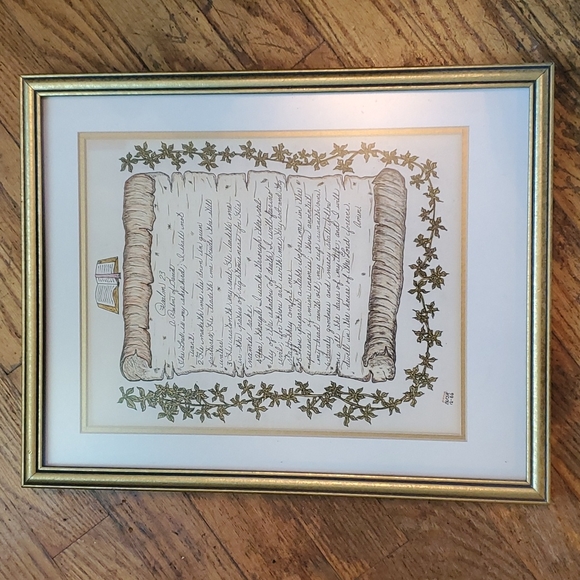 Psalm 23
A Psalm of David
The Lord is my shepherd; I shall not
want.
2 He maketh me to lie down in green
pastures: He leadeth me beside the still
waters.
3 He restoreth my soul: He leadeth me
in the paths of righteousness for His
name's sake.
4 Yea, though I walk through the val-
ley of the shadow of death, I will fear no
evil: for thou art with me; thy rod and thy
staff they comfort me.
5 Thou preparest a table before me in the
presence of mine enemies: thou anointest
my head with oil; my cup runneth over.
6 Surely goodness and mercy shall follow
me all the days of my life: and I will
dwell in the house of the Lord forever.
Amen.